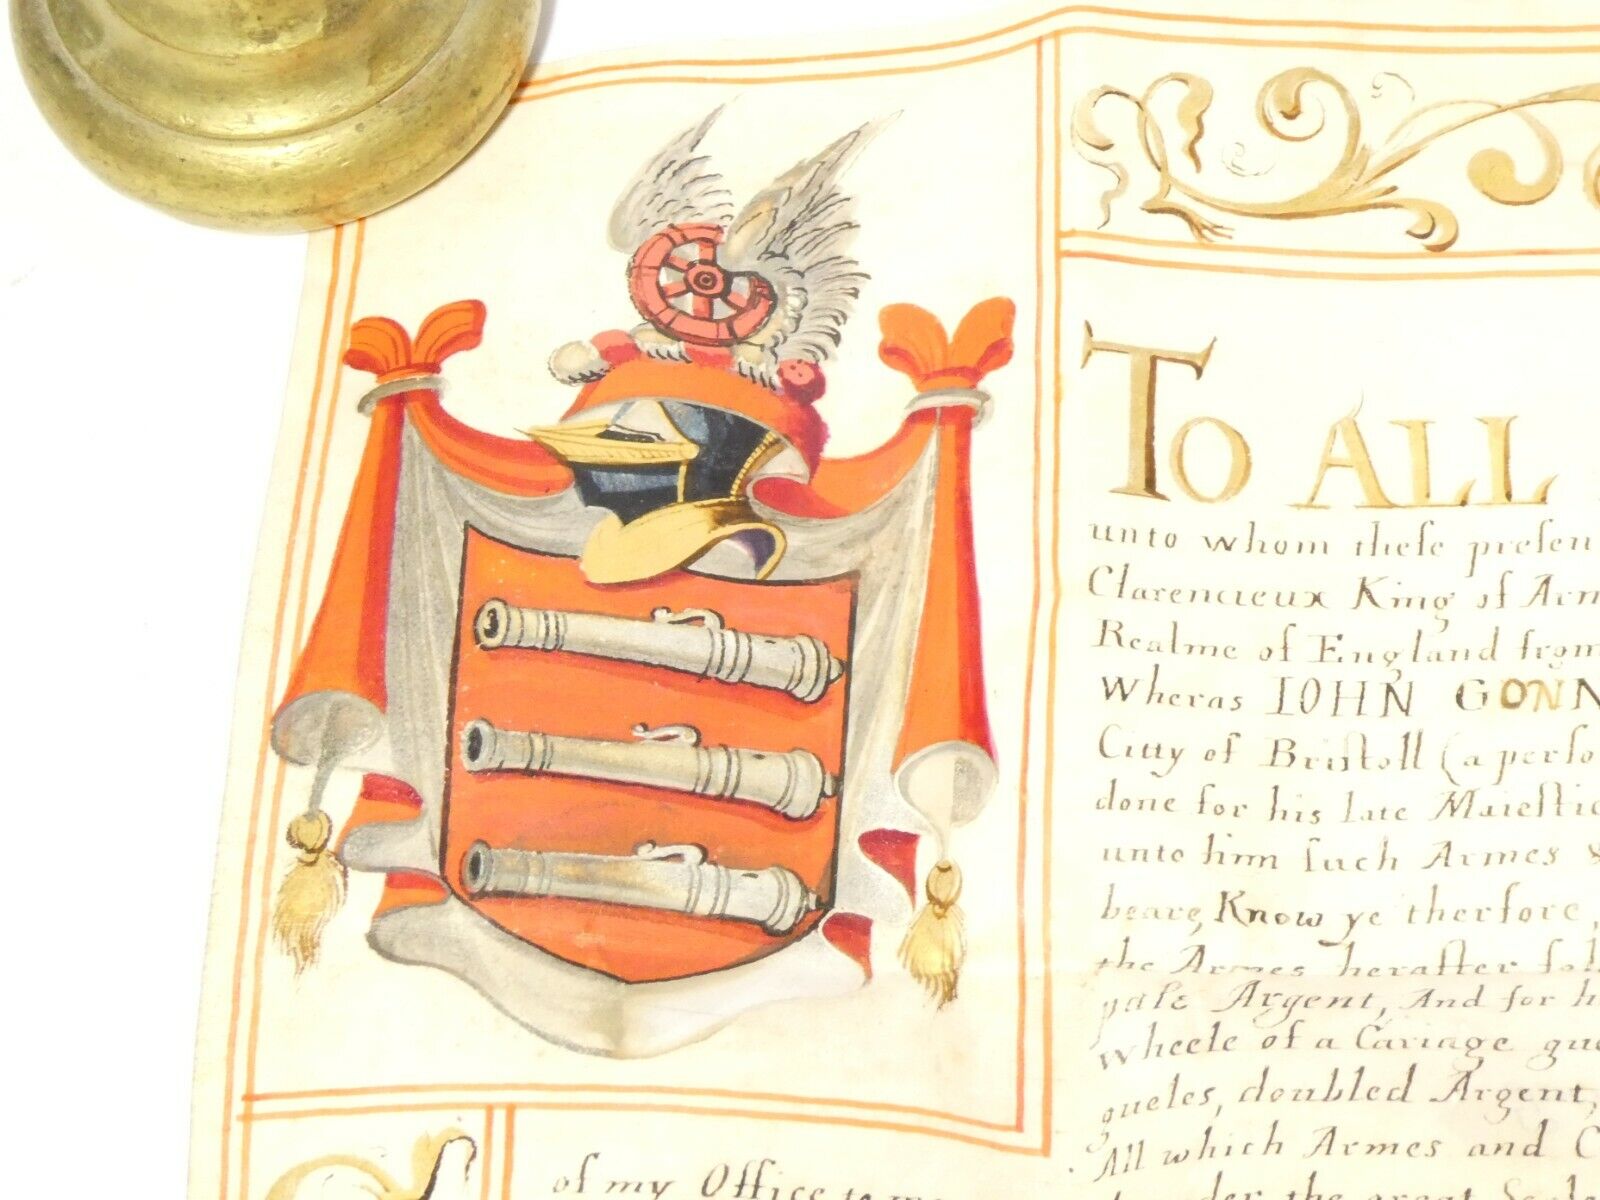 To ALL
unto whom these presen
Clarencieux King of Arm
Realme of England from
Wheras IOHN GONN
Citty of Bristoll (a perso
done for his late Maiestie
unto him such Armes &
beare, Know ye therfore,
the Armes herafter fol
pale Argent, And for h
wheele of a Cariage gue
gueles, doubled Argent,
All which Armes and C
under the great Seale
of my Office to me